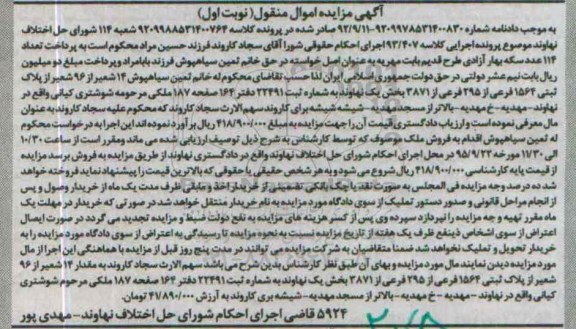 آگهی مزایده اموال منقول (نوبت اول)
به موجب دادنامه شماره ۹۲۰۹۹۷۸۵۳۱۴۰۰۸۳۰-۹۲/۹/۱۱ صادر شده در پرونده کلاسه ۹۲۰۹۹۸۸۵۳۱۴۰۰۷۶۴ شعبه ۱۱۴ شورای حل اختلاف
نهاوند موضوع پرونده اجرایی کلاسه ۹۳/۴۰۷ اجرای احکام حقوقی شورا آقای سجاد کاروند فرزند حسین مراد محکوم است به پرداخت تعداد
۱۱۴ عدد سکه بهار آزادی طرح قدیم بابت مهریه به عنوان اصل خواسته در حق خانم ثمین سیاهپوش فرزند بابامراد و پرداخت مبلغ دو میلیون
ریال بابت نیم عشر دولتی در حق دولت جمهوری اسلامی ایران لذا حسب تقاضای محکوم له خانم ثمین سیاهپوش ۱۴ شعیر از ۹۶ شعیر از پلاک
ثبتی ۱۵۶۴ فرعی از ۲۹۵ فرعی از ۳۸۷۱ بخش یک نهاوند به شماره ثبت ۲۲۴۹۱ دفتر ۱۶۴ صفحه ۱۸۷ ملکی مرحومه شوشتری کیانی واقع در
نهاوند-مهدیه-خ مهدیه-بالاتر از مسجد مهدیه-شیشه شیشه بری کاروند سهم الارث سجاد کاروند که محکوم علیه سجاد کاروند به عنوان
مال معرفی نموده است و ارزیاب دادگستری قیمت آن را جهت مزایده به مبلغ ۴۱۸/۹۰۰/۰۰۰ ریال برآورد نموده اند این اجرا به درخواست محکوم
له ثمین سیاهپوش اقدام به فروش ملک موصوف که توسط کارشناس به شرح ذیل توصیف ارزیابی شده می ماند و مقرر است از ساعت ۱۰/۳۰
الی ۱۱/۳۰ مورخه ۹۵/۹/۲۳ در محل اجرای احکام شورای حل اختلاف نهاوند واقع در دادگستری نهاوند از طریق مزایده به فروش برسد مزایده
از قیمت پایه کارشناسی ۴۱۸/۹۰۰/۰۰۰ ریال شروع می شود و به هر شخص حقیقی یا حقوقی که بالاترین قیمت را پیشنهاد نماید فروخته خواهد
شد ده درصد وجه مزایده فی المجلس به صورت نقد یا چک بانکی تضمینی از خریدار اخذ و مابقی ظرف مدت یک ماه از خریدار وصول و پس
از انجام مراحل قانونی و صدور دستور تملیک از سوی دادگاه مورد مزایده به نام خریدار منتقل خواهد شد در صورتی که خریدار در مهلت یک
ماه مقرر تهیه و جه مزایده را نپردازد سپرده وی پس از کسر هزینه های مزایده به نفع دولت ضبط و مزایده تجدید می گردد در صورت ایصال
اعتراض از سوی اشخاص ذینفع ظرف یک هفته از تاریخ مزایده نسبت به نحوه مزایده تا رسیدگی به اعتراض از سوی دادگاه مورد مزایده را به
خریدار تحویل و تملیک نخواهد شد ضمنا متقاضیان به شرکت مزایده می توانند در مدت پنج روز قبل از مزایده با هماهنگی این اجرا از مال
مورد مزایده دیدن نمایند مال مورد مزایده و بهای آن طبق نظر کارشناس بدین شرح می باشد سهم الارث سجاد کاروند به مقدار ۱۴ شعیر از ۹۶
شعیر از پلاک ثبتی ۱۵۶۴ فرعی از ۲۹۵ فرعی از ۳۸۷۱ بخش یک نهاوند به شماره ثبت ۲۲۴۹۱ دفتر ۱۶۴ صفحه ۱۸۷ ملکی مرحوم شوشتری
کیانی واقع در نهاوند-مهدیه-خ مهدیه-بالاتر از مسجد مهدیه-شیشه بری کاروند به ارزش ۴۱/۸۹۰/۰۰۰ تومان.
۵۹۲۴ قاضی اجرای احکام شورای حل اختلاف نهاوند-مهدی پور